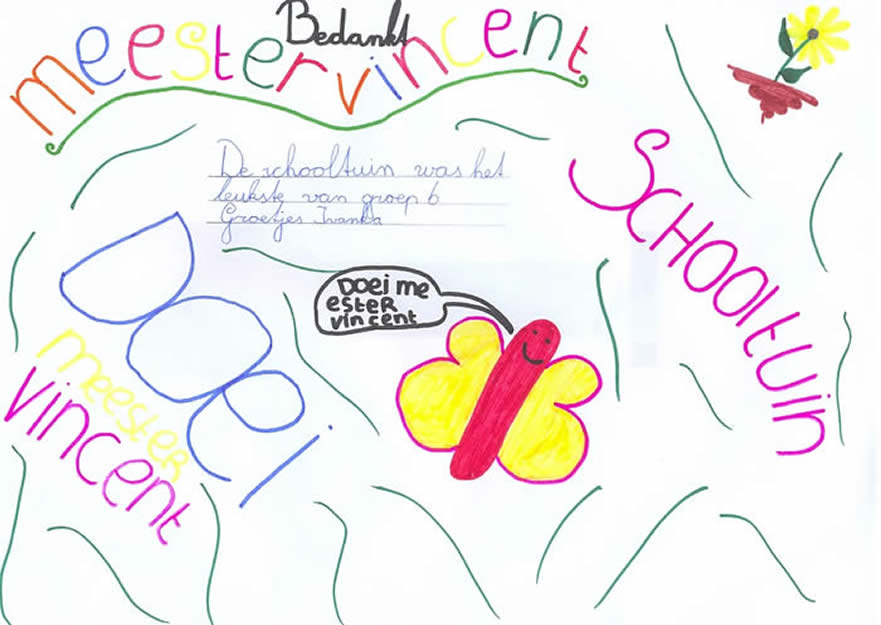 Bedankt
meester vincent
De schooltuin was het
leukste van groep 6
Groetjes Ivanka
SCHOOltUin
DOEi me
ester
vincent
Doei
meester
vincent